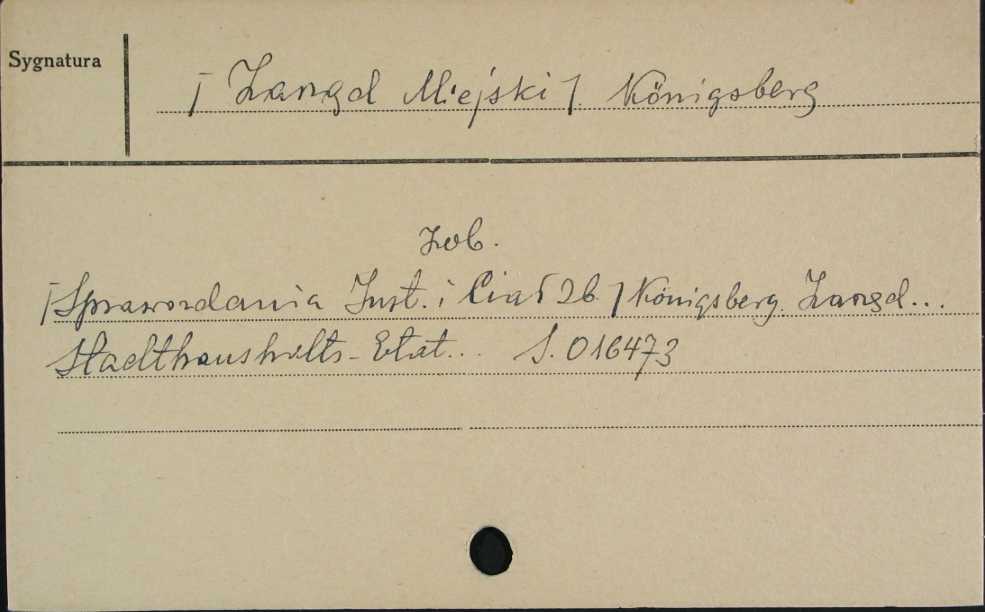 Sygnatura
[Zarząd Miejski] Königsberg
zob.
[Sprawozdania Inst. i Ciał Zb.] Königsberg. Zarząd...
Stadthaushalts-Etat... S. 016473